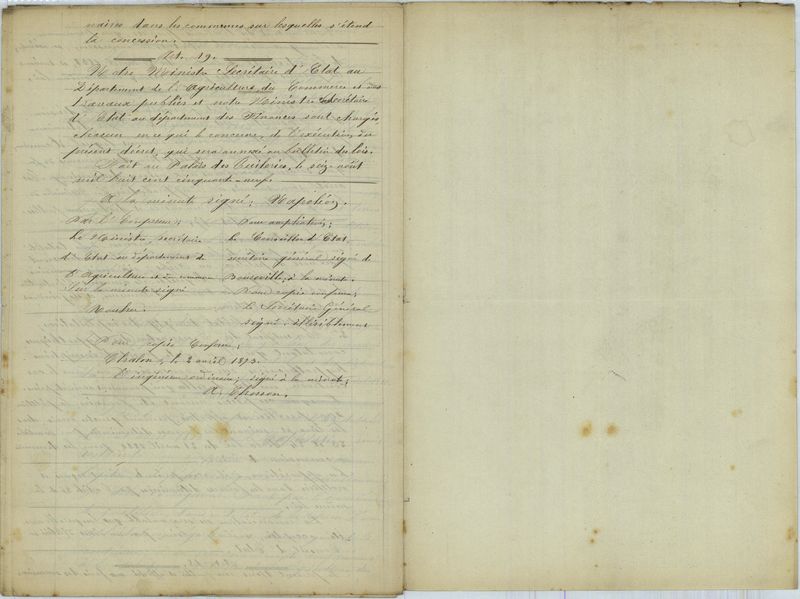 naires dans les communes sur lesquelles s'étend
la concession.
Art. 19.
Notre Ministre Secrétaire d'Etat au
Département de l'Agriculture, du Commerce et des
travaux publics et notre Ministre Secrétaire
d'Etat au département des Finances sont chargés
chacun en ce qui le concerne, de l'exécution du
présent décret, qui sera annexé au bulletin des lois.
Fait au Palais des Tuileries, le seize août
mil huit cent cinquante-neuf.
A la minute signé, Napoléon.
Par l'Empereur;
Le Ministre, secrétaire
d'Etat au département de
l'Agriculture et du commerce
sur la minute signé
Rouher.
Pour ampliation;
Le Conseiller d'Etat
secrétaire général signé de
Boureuille, à la minute.
Pour copie conforme;
Le Secrétaire Général
signé illisiblement
Pour copie conforme;
le 2 avril 1893.
L'ingénieur ordinaire, signé à la minute;